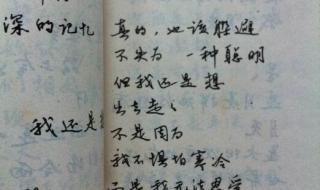 深的记忆
我还是
真的，也该躲避
不失为一种聪明
但我还是想
出去走走
不是因为
我不惧怕寒冷
而是我无法忍受